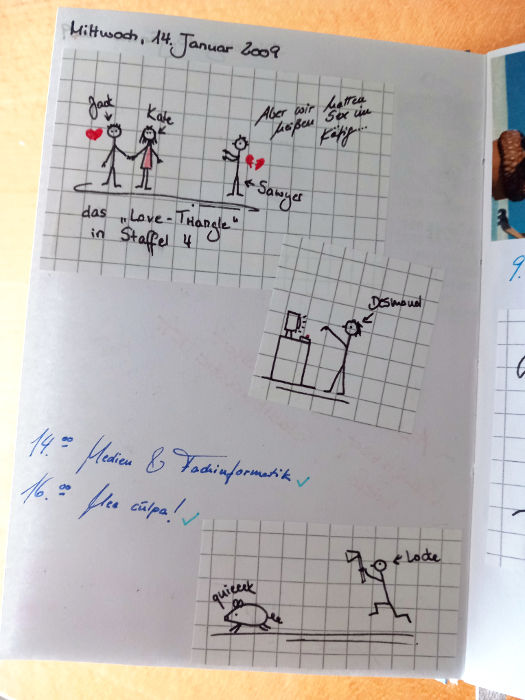 Mittwoch, 14. Januar 2009
Jack
Kate
Aber wir hatten
heißen Sex im
Käfig...
Sawyer
das „Love-Triangle"
in Staffel 4
Desmond
14.00 Medien & Fachinformatik ✓
16.00 Mea culpa! ✓
Locke
quieeek
9.